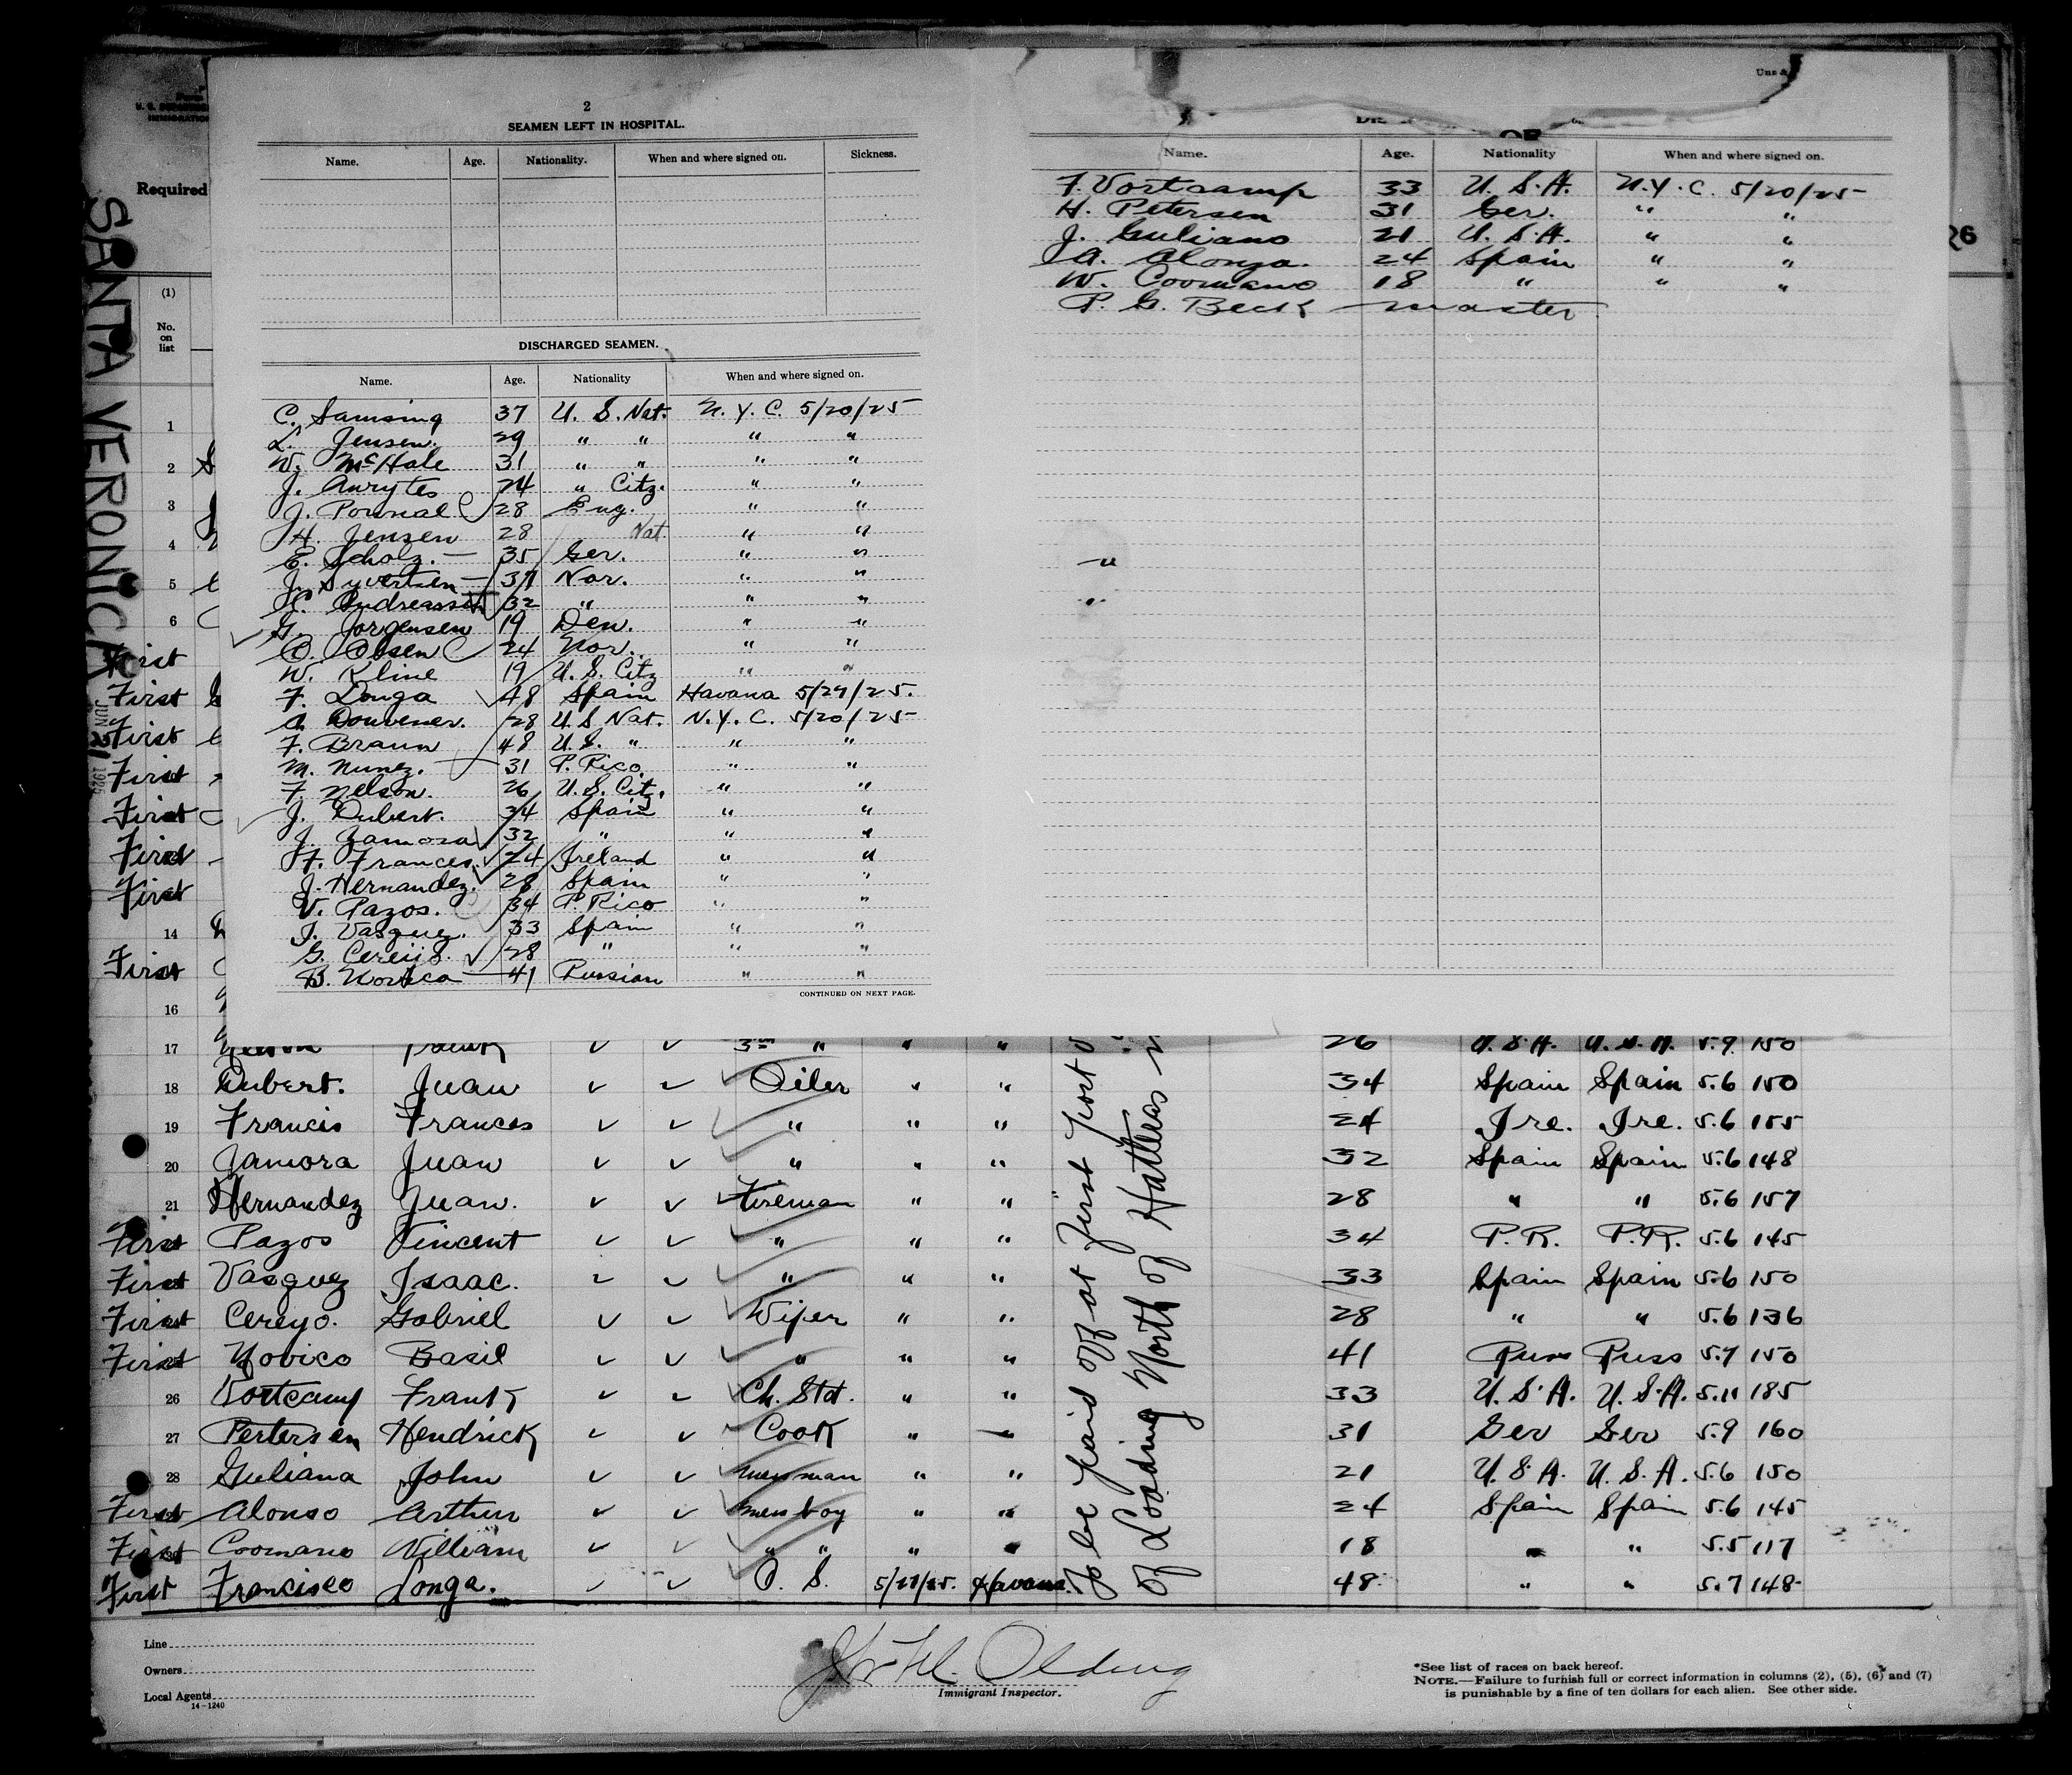 2
SEAMEN LEFT IN HOSPITAL.
Name. Age. Nationality. When and where signed on. Sickness.
DISCHARGED SEAMEN.
Name. Age. Nationality When and where signed on.
C. Samsing 37 U. S. Nat. N. Y. C. 5/20/25
L. Jensen. 29 " " " "
W. McHale 31 " " " "
J. Anrytes 24 " Citz. " "
J. Pownal 28 Eng. " "
H. Jensen 28 Nat " "
E. Scholz. 35 Ger. " "
J. Syvertsen 37 Nor. " "
Andreassen 32 " " "
G. Jorgensen 19 Den. " "
O. Olsen 24 Nor. " "
W. Kline 19 U. S. Citz " "
F. Longa 48 Spain Havana 5/29/25.
A. Douvener. 28 U. S Nat. N. Y. C. 5/20/25
F. Braun 48 U. S. " " "
M. Nunez. 31 P. Rico " "
F Nelson. 26 U. S. Citz. " "
J. Dubert. 34 Spain " "
J. Zamora 32 " " "
F. Frances. 24 Ireland " "
J. Hernandez. 28 Spain " "
V. Pazos. 34 P. Rico " "
I. Vasquez. 33 Spain " "
G. Cereijs. 28 " " "
B. 41 Russian " "
CONTINUED ON NEXT PAGE.
Name. Age. Nationality When and where signed on.
F. Vortcamp 33 U. S. A. N. Y. C. 5/20/25
H. Petersen 31 Ger. " "
J. Guliano 21 U. S. A. " "
A. Alonza. 24 Spain " "
W. Coomano 18 " " "
P. G. Beck master
SANTA VERONICA
JUN 21 1925
Required
26
(1)
No. on list
1
2
3
4
5
6
First
First
First
First
First
First
First
14
First
16
17 Nelson Frank 3rd " " " 26 U. S. A. U. S. A. 5.9 150
18 Dubert. Juan Oiler " " 34 Spain Spain 5.6 150
19 Francis Frances " " " 24 Ire. Ire. 5.6 155
20 Zamora Juan " " " 32 Spain Spain 5.6 148
21 Hernandez Juan. Fireman " " 28 " " 5.6 157
First Pazos Vincent " " " 34 P. R. P. R. 5.6 145
First Vasquez Isaac. " " " 33 Spain Spain 5.6 150
First Cereyo. Gabriel Wiper " " 28 " " 5.6 136
First Novico Basil " " " 41 Russ Russ 5.7 150
26 Vortcamp Frank Ch. Std. " " 33 U. S. A. U. S. A. 5.11 185
27 Pertersen Hendrick Cook " " 31 Ger Ger 5.9 160
28 Guliana John messman " " 21 U. S. A. U. S. A. 5.6 150
First Alonso Arthur mess boy " " 24 Spain Spain 5.6 145
First 30 Coomano William " " " " 18 " " 5.5 117
First Francisco Longa. O. S. 5/29/25. Havana. 48 " " 5.7 148
To be paid off at first port
of Loading North of Hatteras
Line
Owners
Local Agents
14-1240
Immigrant Inspector.
*See list of races on back hereof.
NOTE.—Failure to furnish full or correct information in columns (2), (5), (6) and (7)
is punishable by a fine of ten dollars for each alien. See other side.